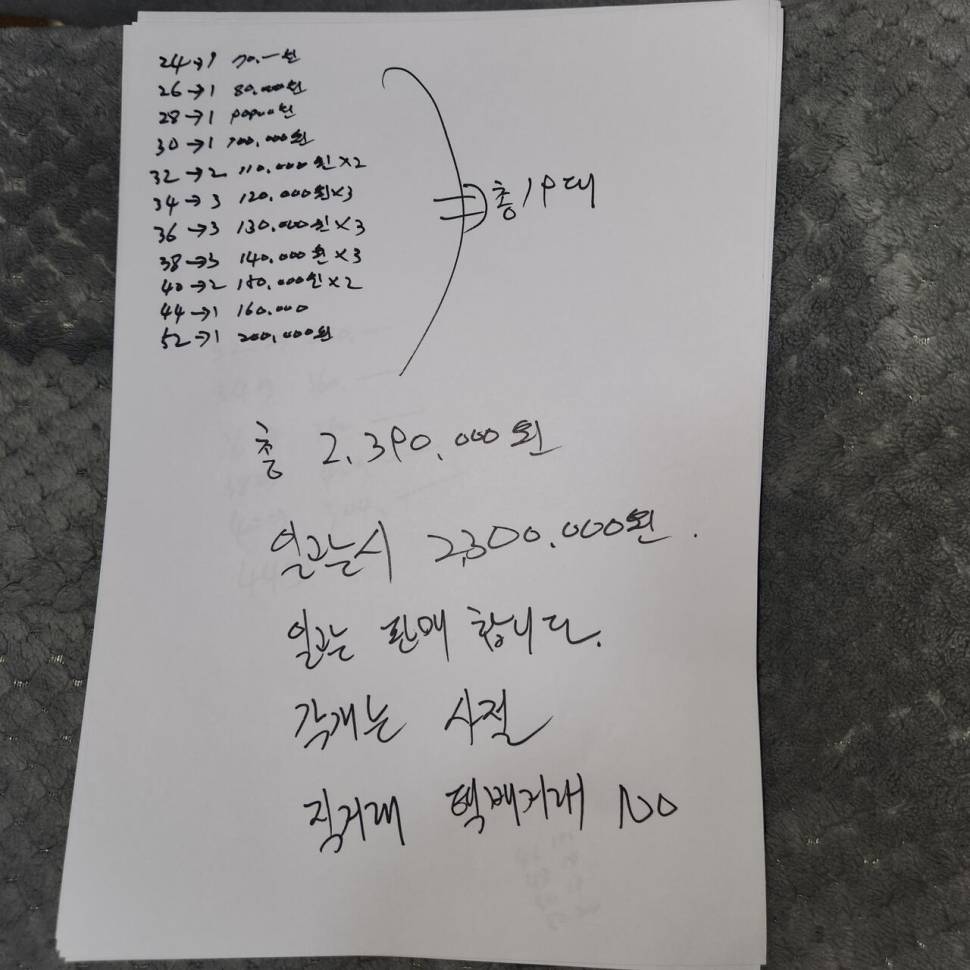 24→1 70.一원
26→1 80.000원
28→1 90,000원
30→1 100,000원
32→2 110,000원×2
34→3 120.000원×3
36→3 130.000원×3
38→3 140.000원×3
40→2 150,000원×2
44→1 160.000
52→1 200,000원
=총19대
총 2,390,000원
일괄시 2,300,000원.
일괄 판매 합니다.
각개는 사절
직거래 택배거래 NO